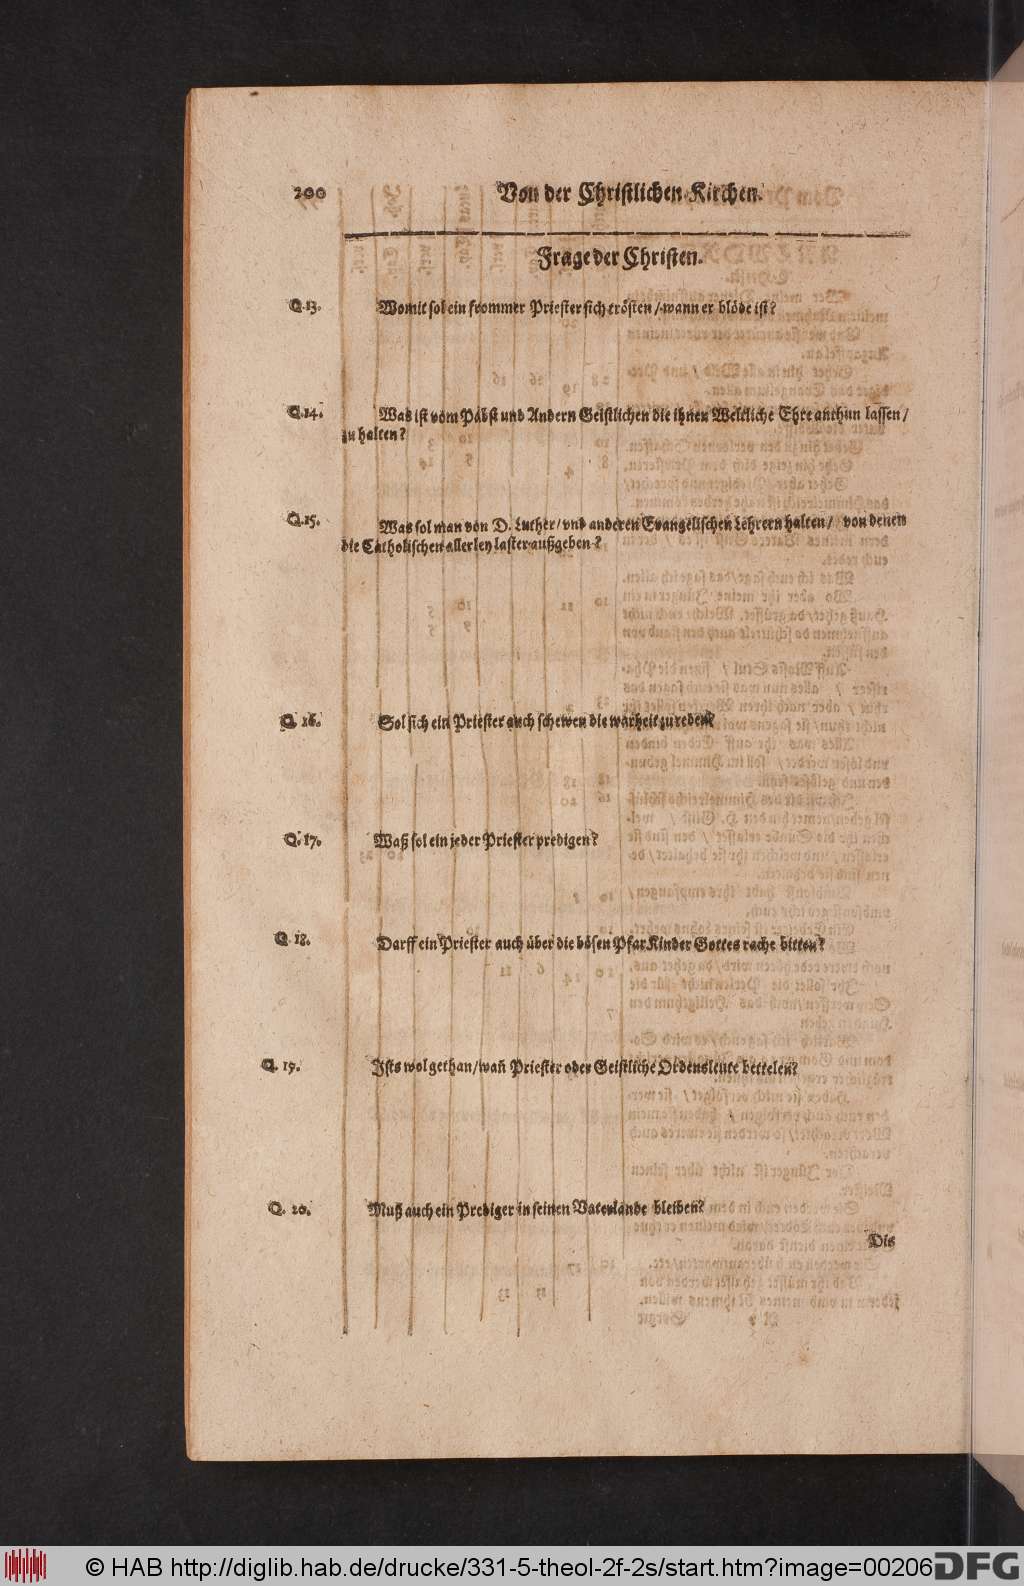 200
Von der Christlichen Kirchen.
Frage der Christen.
Q. 13. Womit sol ein frommer Priester sich trösten / wann er blöde ist?
Q. 14. Was ist vom Pabst und Andern Geistlichen die ihnen Weltliche Ehre anthun lassen /
zu halten?
Q. 15. Was sol man von D. Luther / vnd anderen Evangelischen Lehrern halten / von denen
die Catholischen allerley laster außgeben?
Q. 16. Sol sich ein Priester auch schewen die warheit zu reden?
Q. 17. Waß sol ein jeder Priester predigen?
Q. 18. Darff ein Priester auch über die bösen PfarKinder Gottes rache bitten?
Q. 19. Ists wol gethan / wañ Priester oder Geistliche Ordensleute bettelen?
Q. 20. Muß auch ein Prediger in seinen Vaterlande bleiben?
Dis
© HAB http://diglib.hab.de/drucke/331-5-theol-2f-2s/start.htm?image=00206
DFG